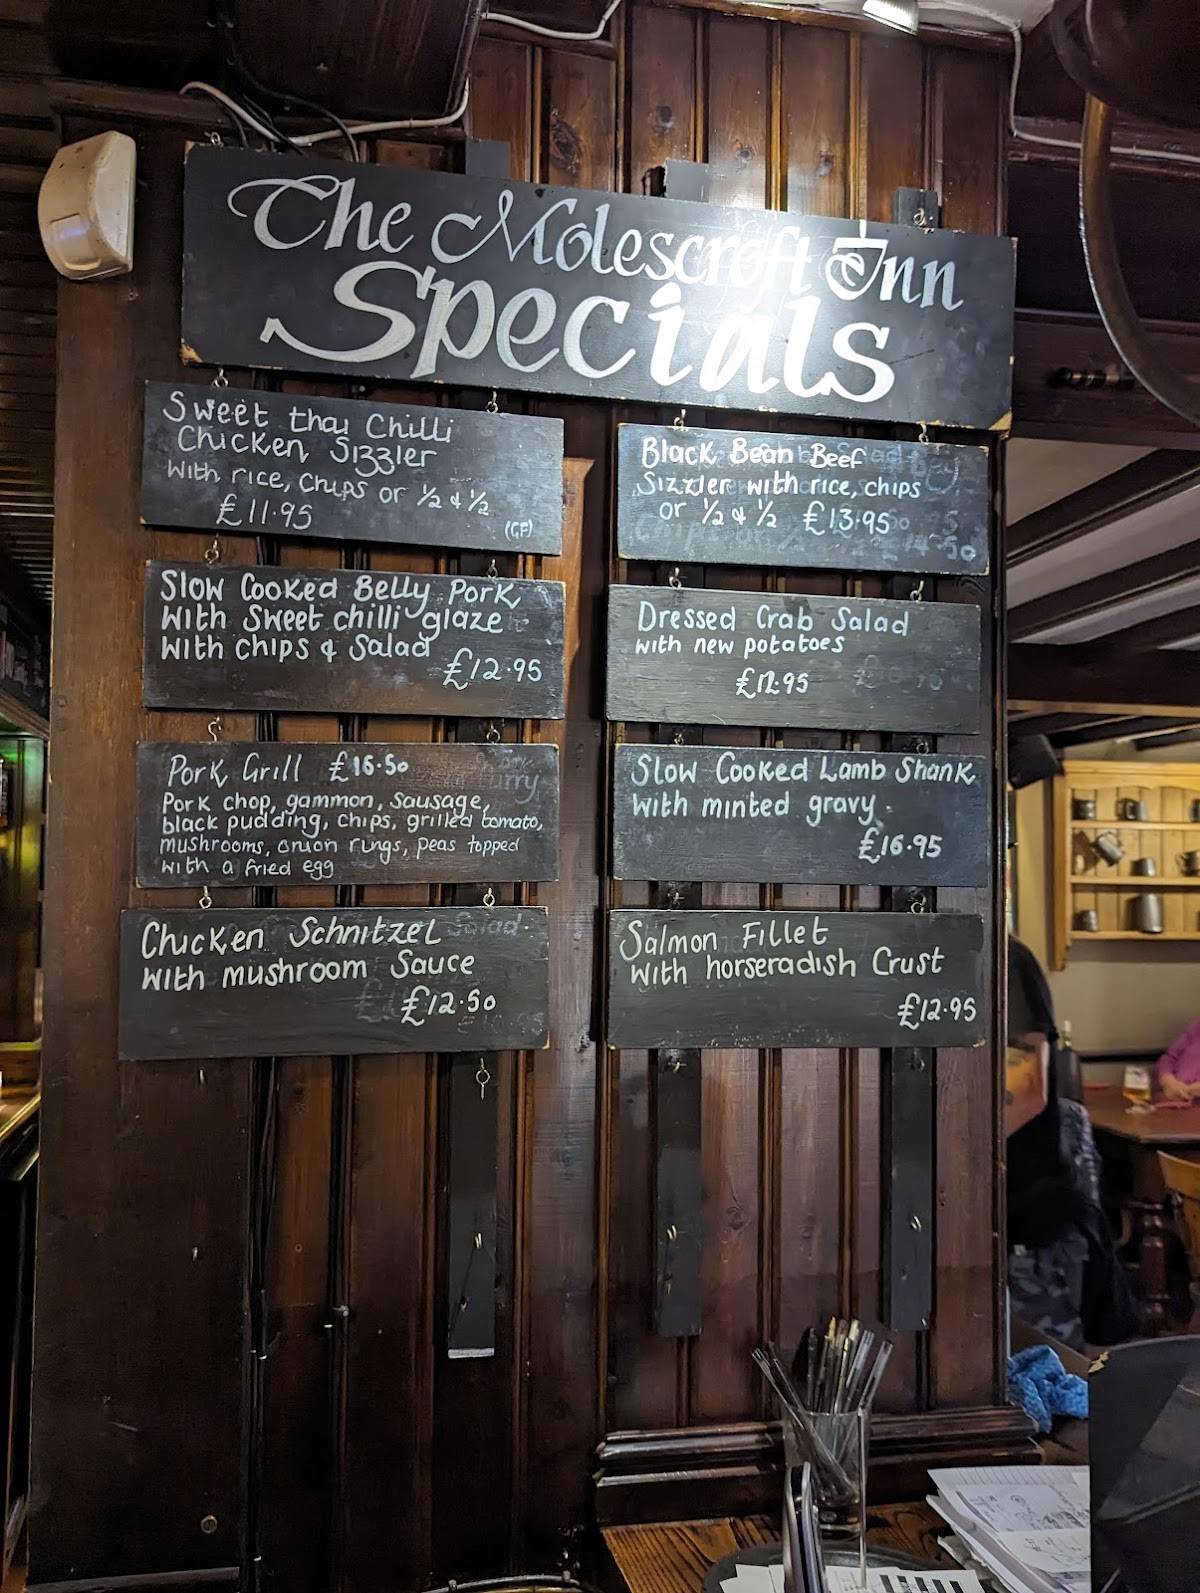 The Molescroft Inn
Specials
Sweet thai Chilli
Chicken Sizzler
with rice, chips or 1/2 & 1/2
£11.95
(GF)
Slow Cooked Belly Pork
with Sweet chilli glaze
with chips & Salad
£12.95
Pork Grill £16.50
Pork chop, gammon, Sausage,
black pudding, chips, grilled tomato,
mushrooms, onion rings, peas topped
with a fried egg
Chicken Schnitzel
with mushroom Sauce
£12.50
Black Bean Beef
Sizzler with rice, chips
or 1/2 & 1/2 £13.95
Dressed Crab Salad
with new potatoes
Slow Cooked Lamb Shank
with minted gravy.
£16.95
Salmon Fillet
with horseradish Crust
£12.95